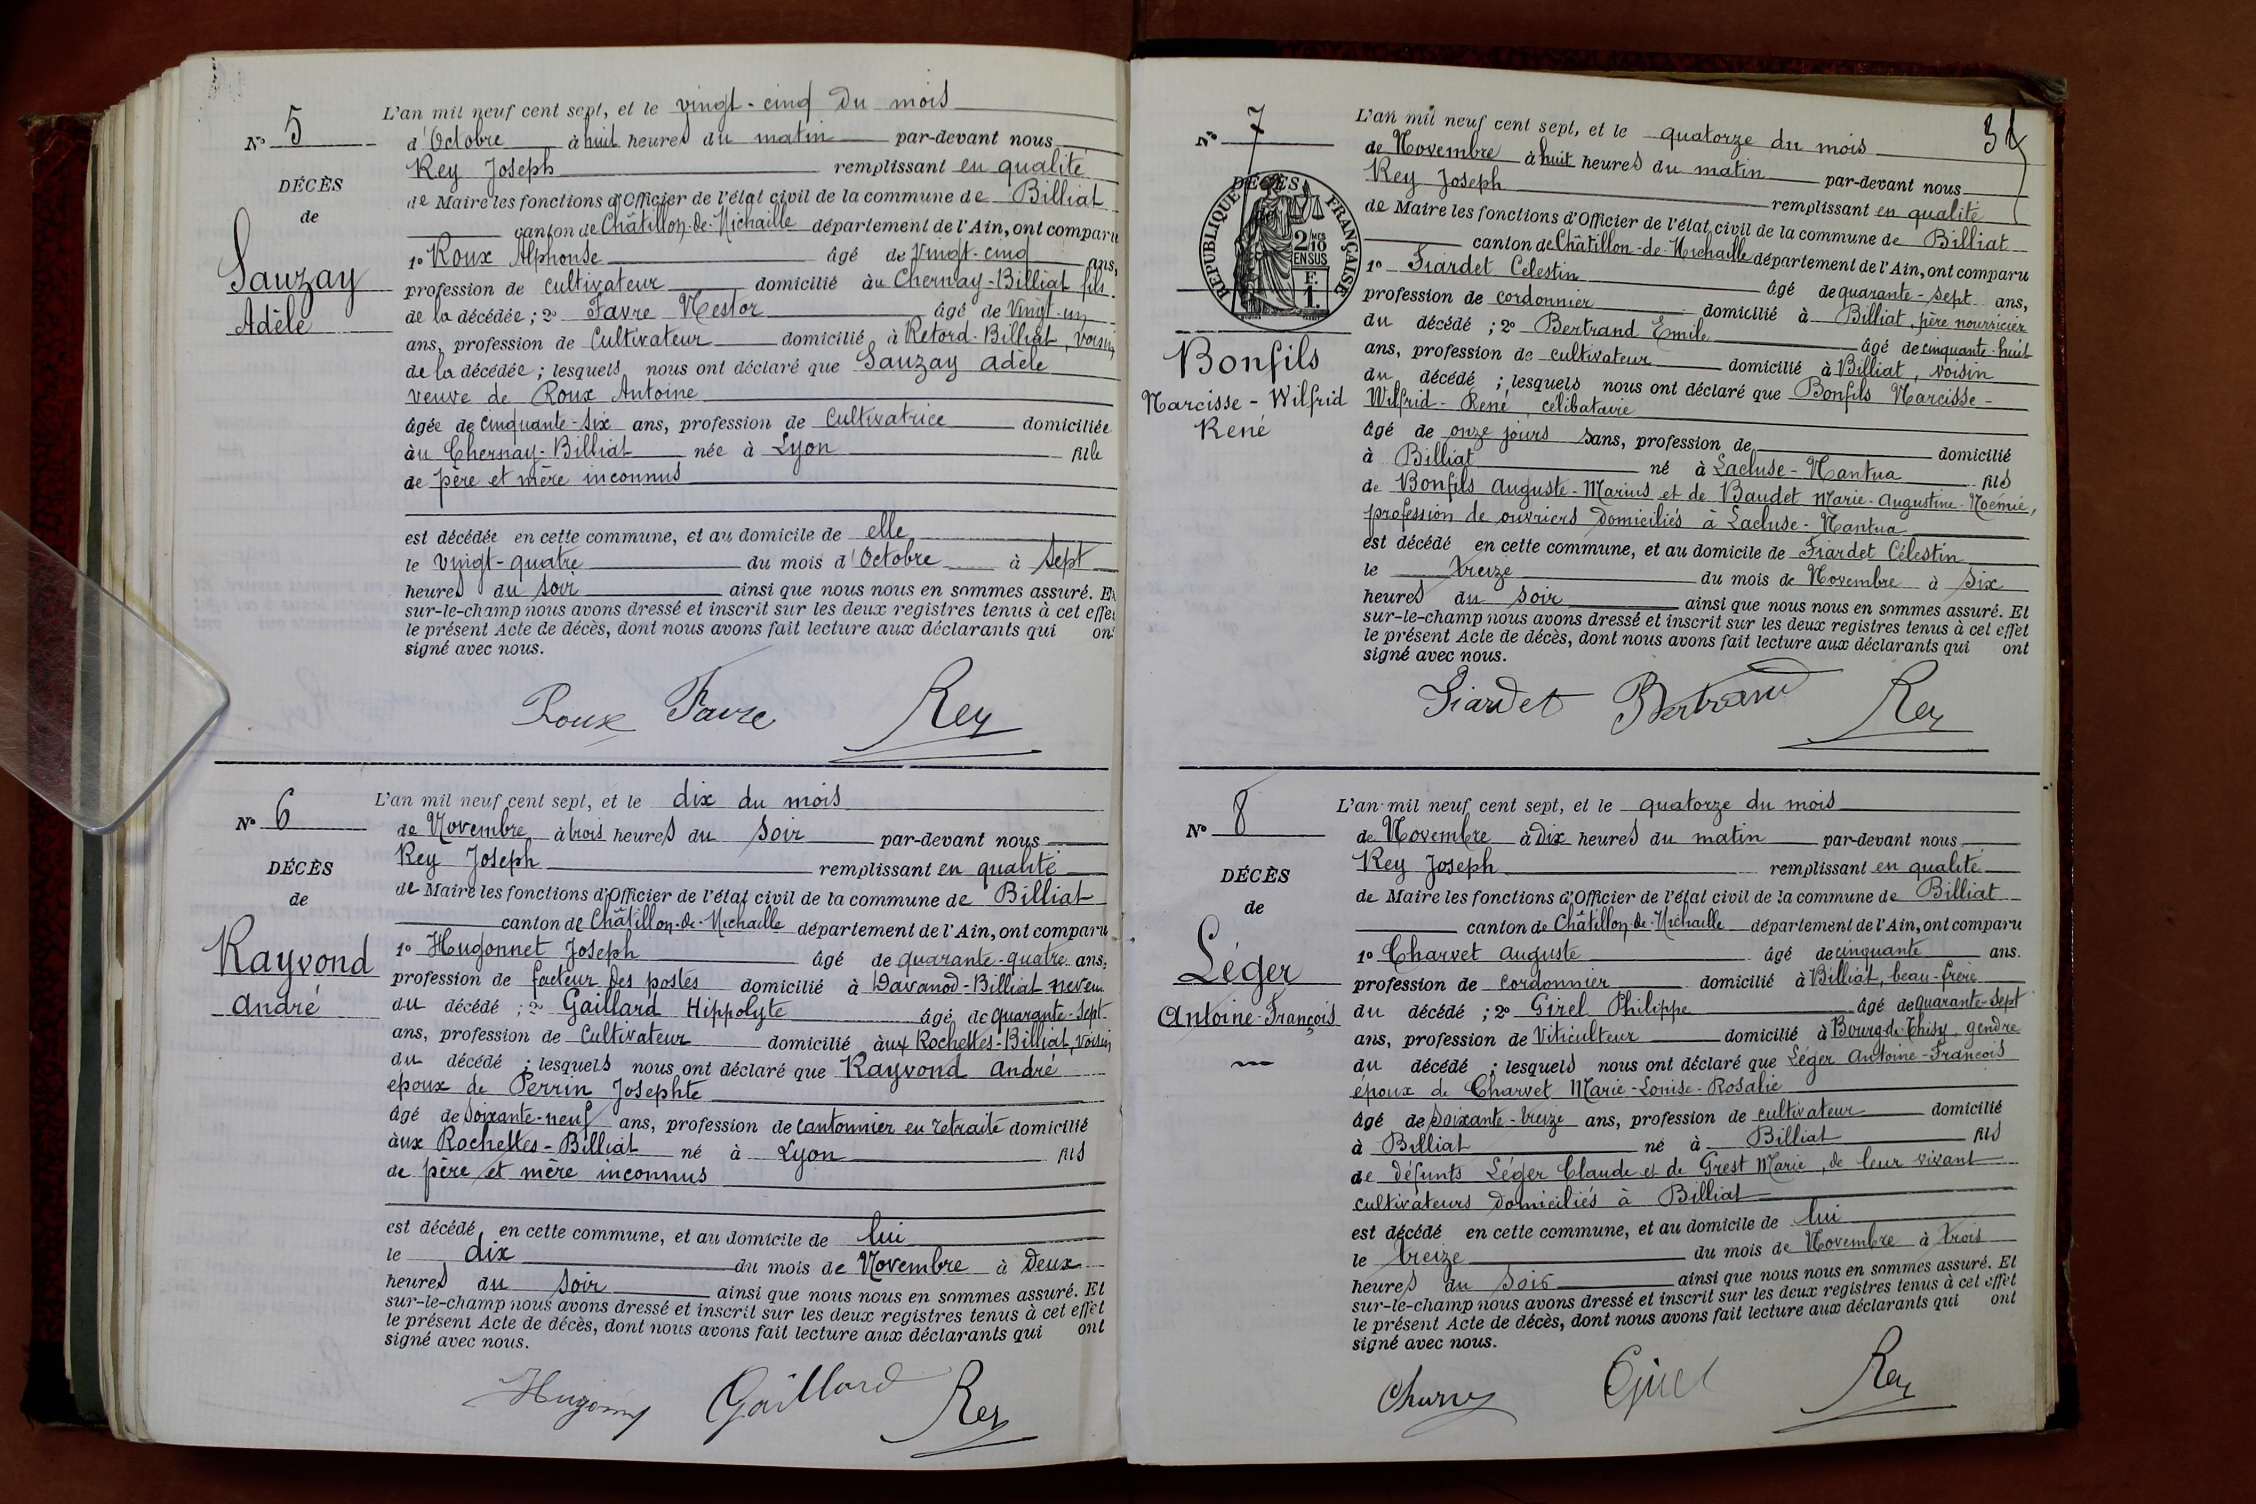 L'an mil neuf cent sept, et le vingt-cinq du mois
N° 5
d'Octobre à huit heures du matin par-devant nous
Rey Joseph remplissant en qualité
DÉCÈS
de Maire les fonctions d'Officier de l'état civil de la commune de Billiat
de
canton de Châtillon-de-Michaille département de l'Ain, ont comparu
1° Roux Alphonse âgé de Vingt-cinq ans,
Sauzay
profession de cultivateur domicilié au Chernay-Billiat fils
Adèle
de la décédée; 2° Favre Nestor âgé de Vingt-un
ans, profession de Cultivateur domicilié à Retord-Billiat, voisin
de la décédée; lesquels nous ont déclaré que Sauzay Adèle
veuve de Roux Antoine
âgée de cinquante-six ans, profession de Cultivatrice domiciliée
au Chernay-Billiat née à Lyon fille
de père et mère inconnus
est décédée en cette commune, et au domicile de elle
le Vingt-quatre du mois d'Octobre à Sept
heures du soir ainsi que nous nous en sommes assuré. Et
sur-le-champ nous avons dressé et inscrit sur les deux registres tenus à cet effet
le présent Acte de décès, dont nous avons fait lecture aux déclarants qui ont
signé avec nous.
Roux Favre Rey
L'an mil neuf cent sept, et le dix du mois
N° 6
de Novembre à trois heures du soir par-devant nous
Rey Joseph remplissant en qualité
DÉCÈS
de Maire les fonctions d'Officier de l'état civil de la commune de Billiat
de
canton de Châtillon-de-Michaille département de l'Ain, ont comparu
1° Hugonnet Joseph âgé de quarante-quatre ans,
Rayvond
profession de facteur des postes domicilié à Davanod-Billiat neveu
André
du décédé; 2° Gaillard Hippolyte âgé de quarante-sept
ans, profession de Cultivateur domicilié aux Rochettes-Billiat, voisin
du décédé; lesquels nous ont déclaré que Rayvond André
époux de Perrin Josephte
âgé de soixante-neuf ans, profession de Cantonnier en retraite domicilié
aux Rochettes-Billiat né à Lyon fils
de père et mère inconnus
est décédé en cette commune, et au domicile de lui
le dix du mois de Novembre à Deux
heures du soir ainsi que nous nous en sommes assuré. Et
sur-le-champ nous avons dressé et inscrit sur les deux registres tenus à cet effet
le présent Acte de décès, dont nous avons fait lecture aux déclarants qui ont
signé avec nous.
Gaillard Rey
L'an mil neuf cent sept, et le quatorze du mois
N° 7
de Novembre à huit heures du matin par-devant nous
Rey Joseph remplissant en qualité
DÉCÈS
RÉPUBLIQUE FRANÇAISE
2/10 EN SUS
F. 1.
de Maire les fonctions d'Officier de l'état civil de la commune de Billiat
canton de Châtillon-de-Michaille département de l'Ain, ont comparu
1° Fiardet Celestin âgé de quarante-sept ans,
profession de cordonnier domicilié à Billiat, père nourricier
du décédé; 2° Bertrand Emile âgé de cinquante-huit
Bonfils
Narcisse-Wilfrid
René
ans, profession de cultivateur domicilié à Billiat, voisin
du décédé; lesquels nous ont déclaré que Bonfils Narcisse-
Wilfrid-René, célibataire
âgé de onze jours sans, profession de domicilié
à Billiat né à Lacluse-Nantua fils
de Bonfils Auguste-Marius et de Baudet Marie-Augustine-Noémie,
profession de ouvriers domiciliés à Lacluse-Nantua
est décédé en cette commune, et au domicile de Fiardet Célestin
le treize du mois de Novembre à six
heures du soir ainsi que nous nous en sommes assuré. Et
sur-le-champ nous avons dressé et inscrit sur les deux registres tenus à cet effet
le présent Acte de décès, dont nous avons fait lecture aux déclarants qui ont
signé avec nous.
Fiardet Bertrand Rey
L'an mil neuf cent sept, et le quatorze du mois
N° 8
de Novembre à Dix heures du matin par-devant nous
Rey Joseph remplissant en qualité
DÉCÈS
de Maire les fonctions d'Officier de l'état civil de la commune de Billiat
de
canton de Châtillon-de-Michaille département de l'Ain, ont comparu
1° Charvet Auguste âgé de cinquante ans.
Léger
profession de cordonnier domicilié à Billiat, beau-frère
Antoine-François
du décédé; 2° Girel Philippe âgé de quarante-sept
ans, profession de Viticulteur domicilié à Bourg-de-Thisy, gendre
du décédé; lesquels nous ont déclaré que Léger Antoine-François
époux de Charvet Marie-Louise-Rosalie
âgé de soixante-treize ans, profession de cultivateur domicilié
à Billiat né à Billiat fils
de défunts Léger Claude et de Grest Marie, de leur vivant
cultivateurs domiciliés à Billiat
est décédé en cette commune, et au domicile de lui
le treize du mois de Novembre à trois
heures du soir ainsi que nous nous en sommes assuré. Et
sur-le-champ nous avons dressé et inscrit sur les deux registres tenus à cet effet
le présent Acte de décès, dont nous avons fait lecture aux déclarants qui ont
signé avec nous.
Girel Rey